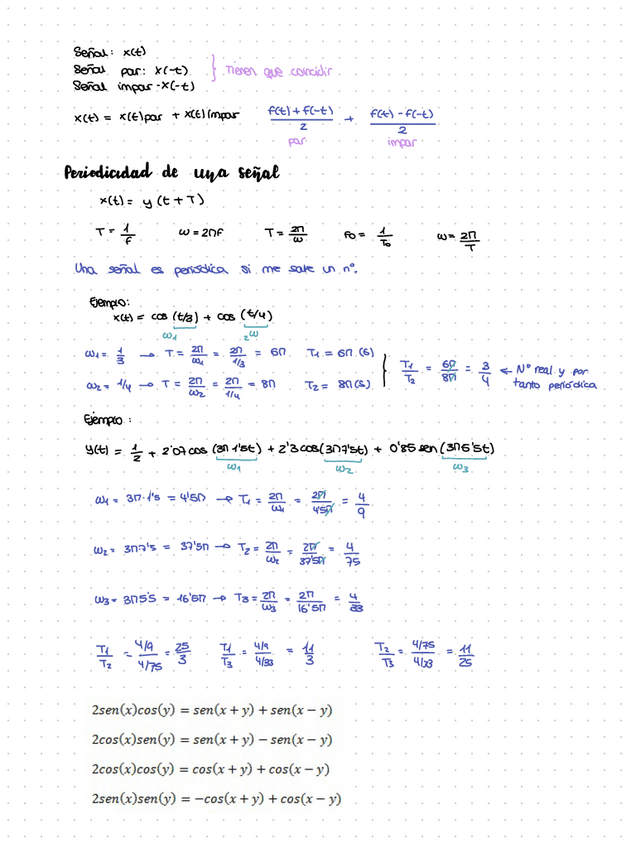 Señal: x(t)
Señal par: x(-t) } Tienen que coincidir
Señal impar -x(-t)
x(t) = x(t)par + x(t)impar (f(t)+f(-t))/2 + (f(t)-f(-t))/2
par impar
Periodicidad de una señal
x(t) = y(t+T)
T = 1/f ω = 2πf T = 2π/ω F0 = 1/T0 ω = 2π/T
Una señal es periódica si me sale un nº.
Ejemplo:
x(t) = cos (t/3) + cos (t/4)
ω1 2ω
ω1 = 1/3 → T = 2π/ω1 = 2π/1/3 = 6π T1 = 6π (s)
ω2 = 1/4 → T = 2π/ω2 = 2π/1/4 = 8π T2 = 8π(s)
} T1/T2 = 6π/8π = 3/4 ← Nº real y por
tanto periódica
Ejemplo :
y(t) = 1/2 + 2'07 cos (3π1'5t) + 2'3 cos(3π7'5t) + 0'85 sen (3π5'5t)
ω1 ω2 ω3
ω1 = 3π·1'5 = 4'5π → T1 = 2π/ω1 = 2π/4'5π = 4/9
ω2 = 3π7'5 = 37'5π → T2 = 2π/ω2 = 2π/37'5π = 4/75
ω3 = 3π5'5 = 16'5π → T3 = 2π/ω3 = 2π/16'5π = 4/33
T1/T2 = 4/9/4/75 = 25/3 T1/T3 = 4/9/4/33 = 11/3 T2/T3 = 4/75/4/33 = 11/25
2sen(x)cos(y) = sen(x + y) + sen(x − y)
2cos(x)sen(y) = sen(x + y) − sen(x − y)
2cos(x)cos(y) = cos(x + y) + cos(x − y)
2sen(x)sen(y) = −cos(x + y) + cos(x − y)